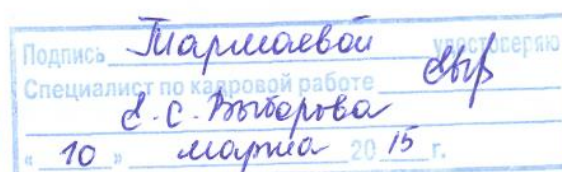 Подпись Тармаевой удостоверяю
Специалист по кадровой работе
Выборова
" 10 " марта 20 15 г.